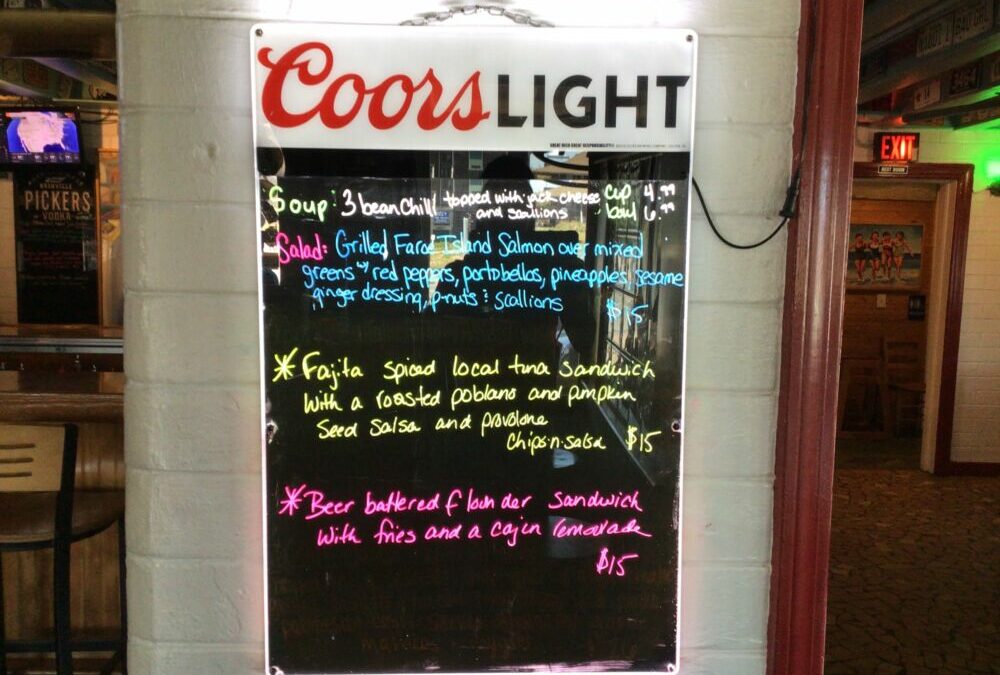 Coors LIGHT
GREAT BEER GREAT RESPONSIBILITY®
Soup: 3 bean Chili topped with jack cheese cup 4.99
and scallions bowl 6.99
Salad: Grilled Faroe Island Salmon over mixed
greens w/ red peppers, portobellos, pineapples, sesame
ginger dressing, p-nuts & scallions
$15
* Fajita spiced local tuna sandwich
With a roasted poblano and pumpkin
Seed Salsa and provolone
Chips-n-salsa $15
* Beer battered flounder sandwich
With fries and a cajun remoulade
$15
NASHVILLE
PICKERS
VODKA
EXIT